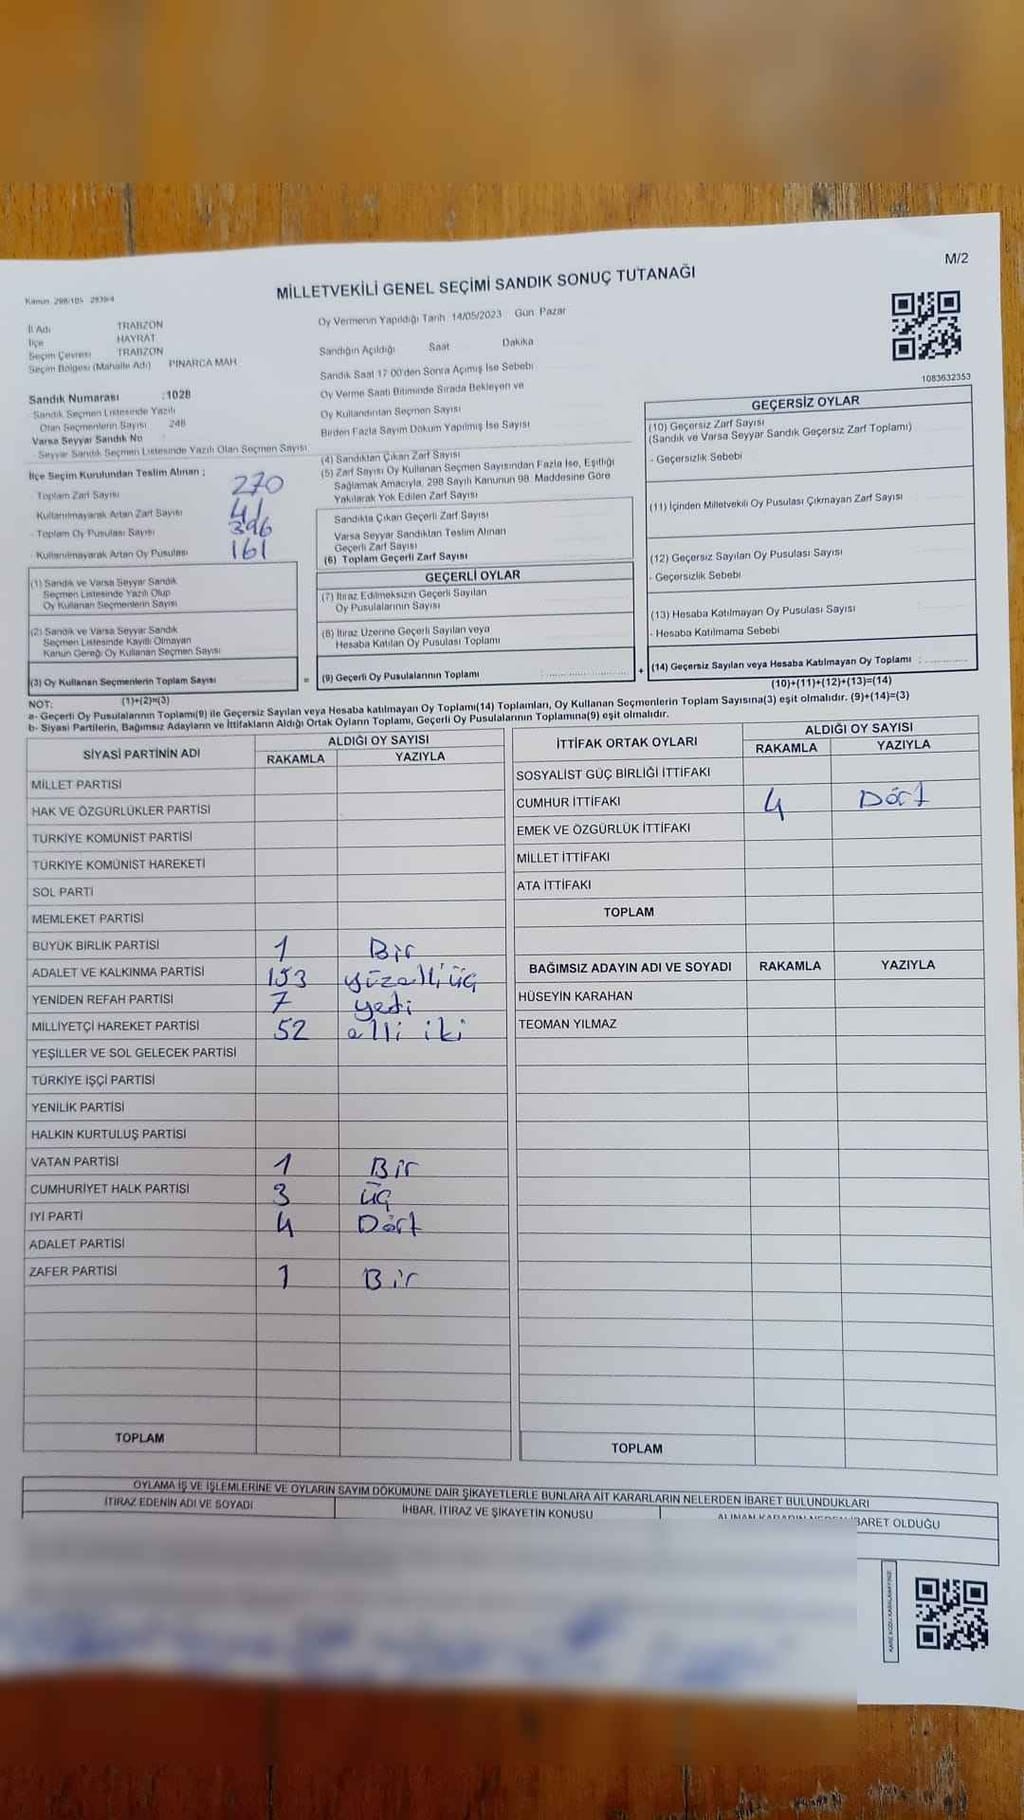 M/2
Kanun 298/105 2839/4
MİLLETVEKİLİ GENEL SEÇİMİ SANDIK SONUÇ TUTANAĞI
İl Adı TRABZON
İlçe HAYRAT
Seçim Çevresi TRABZON
Seçim Bölgesi (Mahalle Adı) PINARCA MAH.
Sandık Numarası : 1028
Sandık Seçmen Listesinde Yazılı
Olan Seçmenlerin Sayısı 248
Varsa Seyyar Sandık No
Seyyar Sandık Seçmen Listesinde Yazılı Olan Seçmen Sayısı
İlçe Seçim Kurulundan Teslim Alınan ;
- Toplam Zarf Sayısı 270
- Kullanılmayarak Artan Zarf Sayısı 41
- Toplam Oy Pusulası Sayısı 396
- Kullanılmayarak Artan Oy Pusulası 161
(1) Sandık ve Varsa Seyyar Sandık
Seçmen Listesinde Yazılı Olup
Oy Kullanan Seçmenlerin Sayısı
(2) Sandık ve Varsa Seyyar Sandık
Seçmen Listesinde Kayıtlı Olmayan
Kanun Gereği Oy Kullanan Seçmen Sayısı
(3) Oy Kullanan Seçmenlerin Toplam Sayısı
(1)+(2)=(3)
Oy Vermenin Yapıldığı Tarih 14/05/2023 Gün Pazar
Sandığın Açıldığı Saat Dakika
Sandık Saat 17 00'den Sonra Açılmış İse Sebebi
Oy Verme Saati Bitiminde Sırada Bekleyen ve
Oy Kullandırılan Seçmen Sayısı
Birden Fazla Sayım Döküm Yapılmış İse Sayısı
(4) Sandıktan Çıkan Zarf Sayısı
(5) Zarf Sayısı Oy Kullanan Seçmen Sayısından Fazla İse, Eşitliği
Sağlamak Amacıyla, 298 Sayılı Kanunun 98. Maddesine Göre
Yakılarak Yok Edilen Zarf Sayısı
Sandıkta Çıkan Geçerli Zarf Sayısı
Varsa Seyyar Sandıktan Teslim Alınan
Geçerli Zarf Sayısı
(6) Toplam Geçerli Zarf Sayısı
GEÇERLİ OYLAR
(7) İtiraz Edilmeksizin Geçerli Sayılan
Oy Pusulalarının Sayısı
(8) İtiraz Üzerine Geçerli Sayılan veya
Hesaba Katılan Oy Pusulası Toplamı
= (9) Geçerli Oy Pusulalarının Toplamı
1083632353
GEÇERSİZ OYLAR
(10) Geçersiz Zarf Sayısı
(Sandık ve Varsa Seyyar Sandık Geçersiz Zarf Toplamı)
- Geçersizlik Sebebi
(11) İçinden Milletvekili Oy Pusulası Çıkmayan Zarf Sayısı
(12) Geçersiz Sayılan Oy Pusulası Sayısı
- Geçersizlik Sebebi
(13) Hesaba Katılmayan Oy Pusulası Sayısı
- Hesaba Katılmama Sebebi
+ (14) Geçersiz Sayılan veya Hesaba Katılmayan Oy Toplamı :
(10)+(11)+(12)+(13)=(14)
NOT:
a- Geçerli Oy Pusulalarının Toplamı(9) ile Geçersiz Sayılan veya Hesaba katılmayan Oy Toplamı(14) Toplamları, Oy Kullanan Seçmenlerin Toplam Sayısına(3) eşit olmalıdır. (9)+(14)=(3)
b- Siyasi Partilerin, Bağımsız Adayların ve İttifakların Aldığı Ortak Oyların Toplamı, Geçerli Oy Pusulalarının Toplamına(9) eşit olmalıdır.
SİYASİ PARTİNİN ADI ALDIĞI OY SAYISI
RAKAMLA YAZIYLA
MİLLET PARTİSİ
HAK VE ÖZGÜRLÜKLER PARTİSİ
TÜRKİYE KOMÜNİST PARTİSİ
TÜRKİYE KOMÜNİST HAREKETİ
SOL PARTİ
MEMLEKET PARTİSİ
BÜYÜK BİRLİK PARTİSİ 1 Bir
ADALET VE KALKINMA PARTİSİ 153 yüzelliüç
YENİDEN REFAH PARTİSİ 7 yedi
MİLLİYETÇİ HAREKET PARTİSİ 52 elli iki
YEŞİLLER VE SOL GELECEK PARTİSİ
TÜRKİYE İŞÇİ PARTİSİ
YENİLİK PARTİSİ
HALKIN KURTULUŞ PARTİSİ
VATAN PARTİSİ 1 Bir
CUMHURİYET HALK PARTİSİ 3 üç
İYİ PARTİ 4 Dört
ADALET PARTİSİ
ZAFER PARTİSİ 1 Bir
TOPLAM
İTTİFAK ORTAK OYLARI ALDIĞI OY SAYISI
RAKAMLA YAZIYLA
SOSYALİST GÜÇ BİRLİĞİ İTTİFAKI
CUMHUR İTTİFAKI 4 Dört
EMEK VE ÖZGÜRLÜK İTTİFAKI
MİLLET İTTİFAKI
ATA İTTİFAKI
TOPLAM
BAĞIMSIZ ADAYIN ADI VE SOYADI RAKAMLA YAZIYLA
HÜSEYİN KARAHAN
TEOMAN YILMAZ
TOPLAM
OYLAMA İŞ VE İŞLEMLERİNE VE OYLARIN SAYIM DÖKÜMÜNE DAİR ŞİKAYETLERLE BUNLARA AİT KARARLARIN NELERDEN İBARET BULUNDUKLARI
İTİRAZ EDENİN ADI VE SOYADI İHBAR, İTİRAZ VE ŞİKAYETİN KONUSU ALINAN KARARIN NEDEN İBARET OLDUĞU